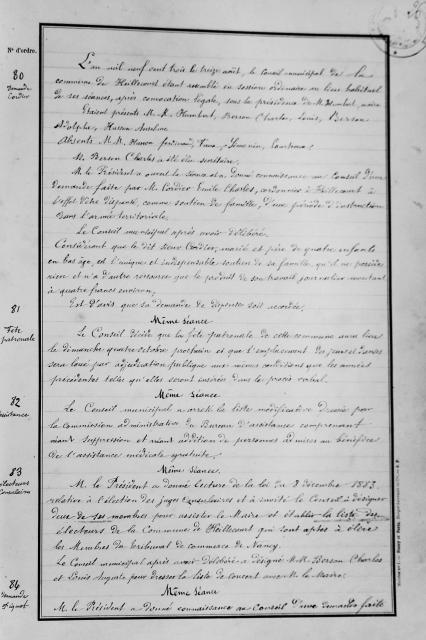 N° d'ordre.
80
Demande
Cordier
L'an mil neuf cent trois le treize août, le Conseil municipal de la
commune de Heillecourt étant rassemblé en session ordinaire au lieu habituel
de ses séances, après convocation légale, sous la présidence de M. Humbert, maire
Étaient présents M.M. Humbert, Berson Charles, Louis, Berson
Adolphe, Husson Anselme
Absents M.M.
M. Berson Charles a été élu secrétaire.
M. le Président a ouvert la séance et a donné connaissance au Conseil d'une
demande faite par M. Cordier Emile Charles, cordonnier à Heillecourt à
l'effet d'être dispensé, comme soutien de famille, d'une période d'instruction
dans l'armée territoriale.
Le Conseil municipal après avoir délibéré.
Considérant que le dit sieur Cordier, marié et père de quatre enfants
en bas âge, est l'unique et indispensable soutien de sa famille, qu'il ne possède
rien et n'a d'autre ressource que le produit de son travail journalier montant
à quatre francs environ,
Est d'avis que sa demande de dispense soit accordée.
81
Fête
patronale
Même séance.
Le Conseil décide que la fête patronale de cette commune aura lieu
le dimanche quatre octobre prochain et que l'emplacement des jeux et danses
sera loué par adjudication publique aux mêmes conditions que les années
précédentes telles qu'elles seront insérées dans le procès verbal.
82
Assistance
Même séance
Le Conseil municipal a arrêté la liste modificative dressée par
la Commission administrative du Bureau d'assistance comprenant
néant suppression et néant addition de personnes admises au bénéfice
de l'assistance médicale gratuite.
83
électeurs
Consulaires
Même séance.
M. le Président a donné lecture de la loi du 8 décembre 1883
relative à l'élection des juges consulaires et a invité le Conseil à désigner
deux de ses membres pour assister le Maire et établir la liste des
électeurs de la Commune de Heillecourt qui sont aptes à élire
les Membres du tribunal de commerce de Nancy.
Le Conseil municipal après avoir délibéré a désigné M.M. Berson Charles
et Louis Auguste pour dresser la liste de concert avec M. le Maire.
84
Demande
Même séance
M. le Président a donné connaissance au Conseil d'une demande faite